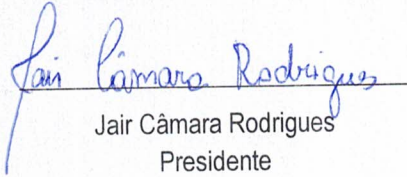 Jair Câmara Rodrigues
Jair Câmara Rodrigues
Presidente